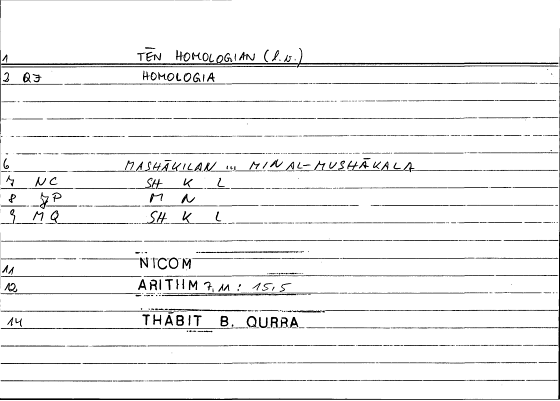 1 TĒN HOMOLOGIAN (l.v.)
3 QJ HOMOLOGIA
6 MASHĀKILAN ... MIN AL-MUSHĀKALA
7 NC SH K L
8 JP M N
9 MQ SH K L
11 NICOM
12 ARITHM 7,11 : 15,5
14 THĀBIT B. QURRA